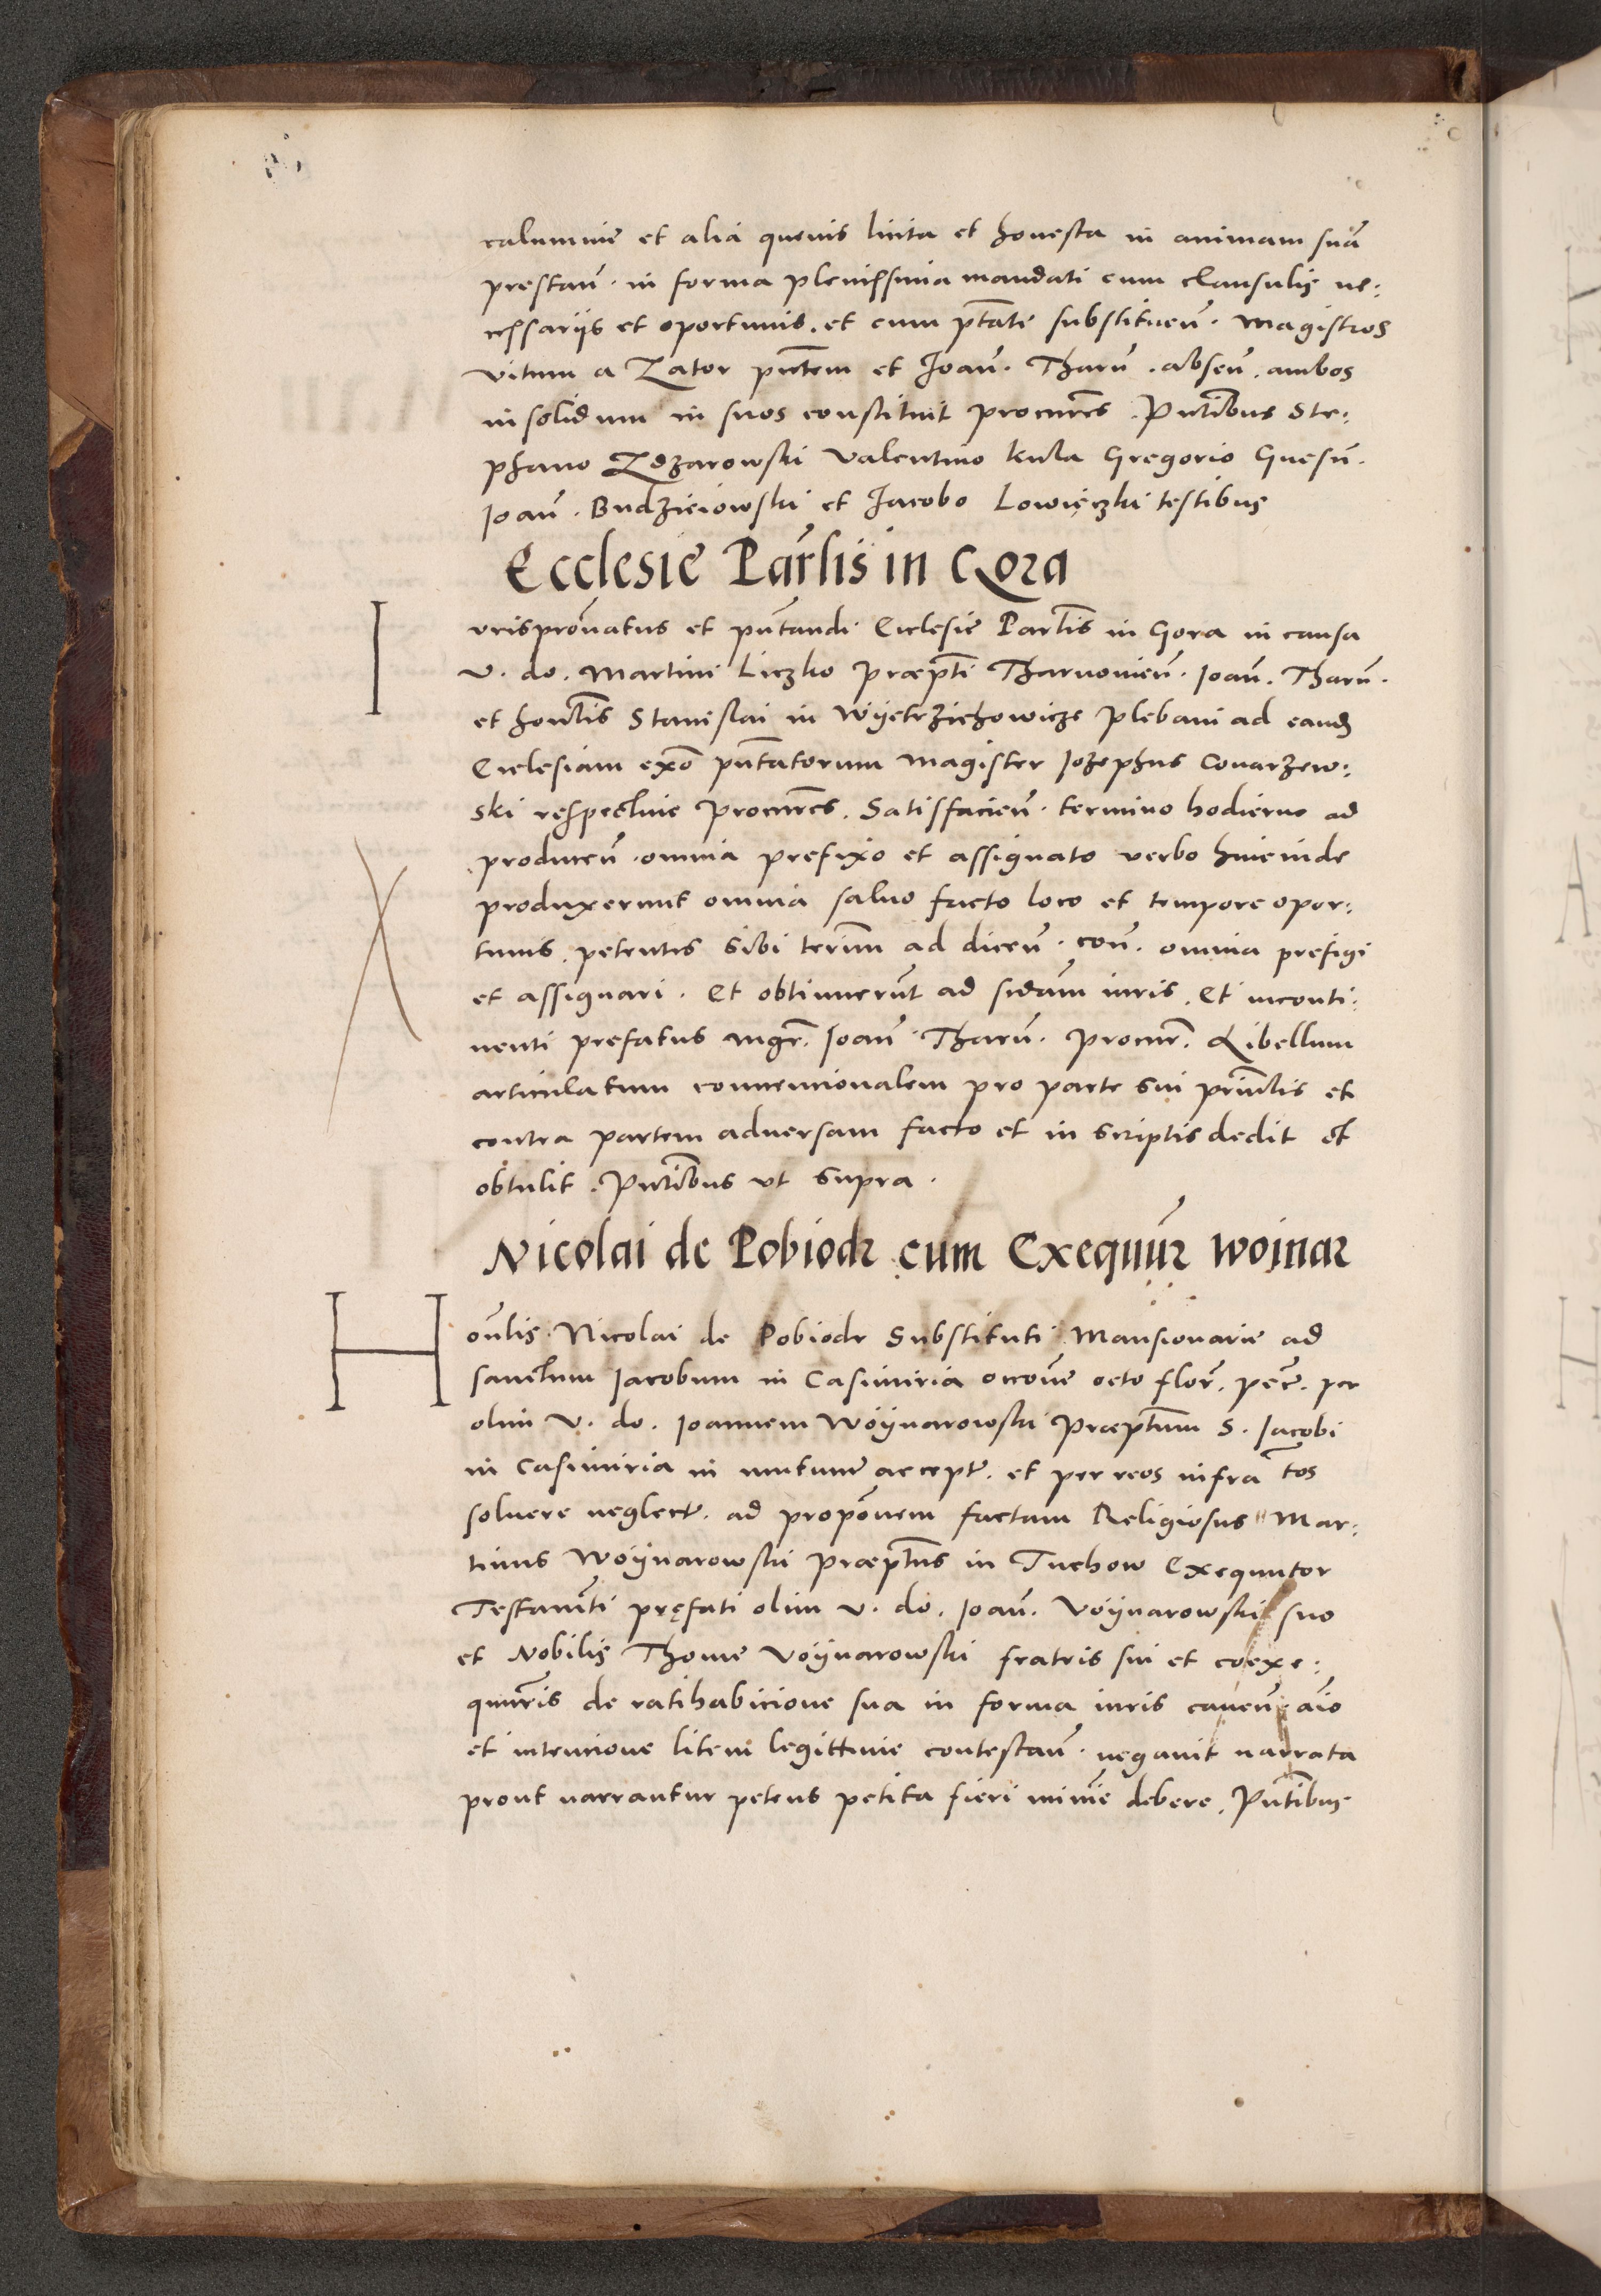 calumnie et alia quevis licita et honesta in animam suā
prestañ. in forma plenissima mandati cum clausulis ne:
cessariis et oportunis. et cum ptāte substitueñ. Magistros
vitum a Zator pñtem et Joañ. Tharñ. absen̄. ambos
insolidum in suos constituit procurēs. Pñtibus Ste:
phano Zdzarowski Valentino kula Gregorio Gnesñ.
Joañ. Budzieiowski et Jacobo Lowięczki testibus
Ecclesie Parlis in Gora
Iurisprōnatus et pñtandi Ecclesie Parlis in Gora in causa
v. do. Martini Liczko Præpti Tharnovieñ. Joañ. Tharñ.
et honlis Stanislai in Wyetrzichowicze Plebani ad eand
Ecclesiam exō pñtatorum magister Jozephus Conarzew:
ski respective Procurēs. Satisfacieñ. termino hodierno ad
produceñ. omnia prefixo et assignato verbo hincinde
produxerunt omnia salvo facto loco et tempore opor:
tunis. petentes sibi terīm ad diceñ. coñ. omnia prefigi
et assignari. Et obtinuerūt ad sīdam iuris. Et inconti:
nenti prefatus mgr̄. Joañ Tharñ. procur̄. Libellum
articulatum convencionalem pro parte sui prīnclis et
contra partem adversam facto et in scriptis dedit et
obtulit. Pñtibus ut supra.
Nicolai de Pobiedr cum Exequūr woinar
Hoñlis Nicolai de Pobiedr Substituti Mansionarie ad
sanctum Jacobum in Casimiria occōne octo flor̄. pec̄. per
olim v. do. Joannem Woÿnarowski Præptum S. Jacobi
in Casimiria in mutuum accept. et per reos infra tos
solvere neglect. ad propōnem factam Religiosus Mar:
tinus Woÿnarowski Præptus in Tuchow Exequutor
Testamīti pręfati olim v. do. Joañ. Voÿnarowski suo
et Nobilis Thome Voÿnarowski fratris sui et coexe:
quuris de ratihabicione sua in forma iuris caveñ. aīo
et intencione litem legittime contestañ. negavit narrata
prout narrantur petens petita fieri minīe debere. Pñtibus